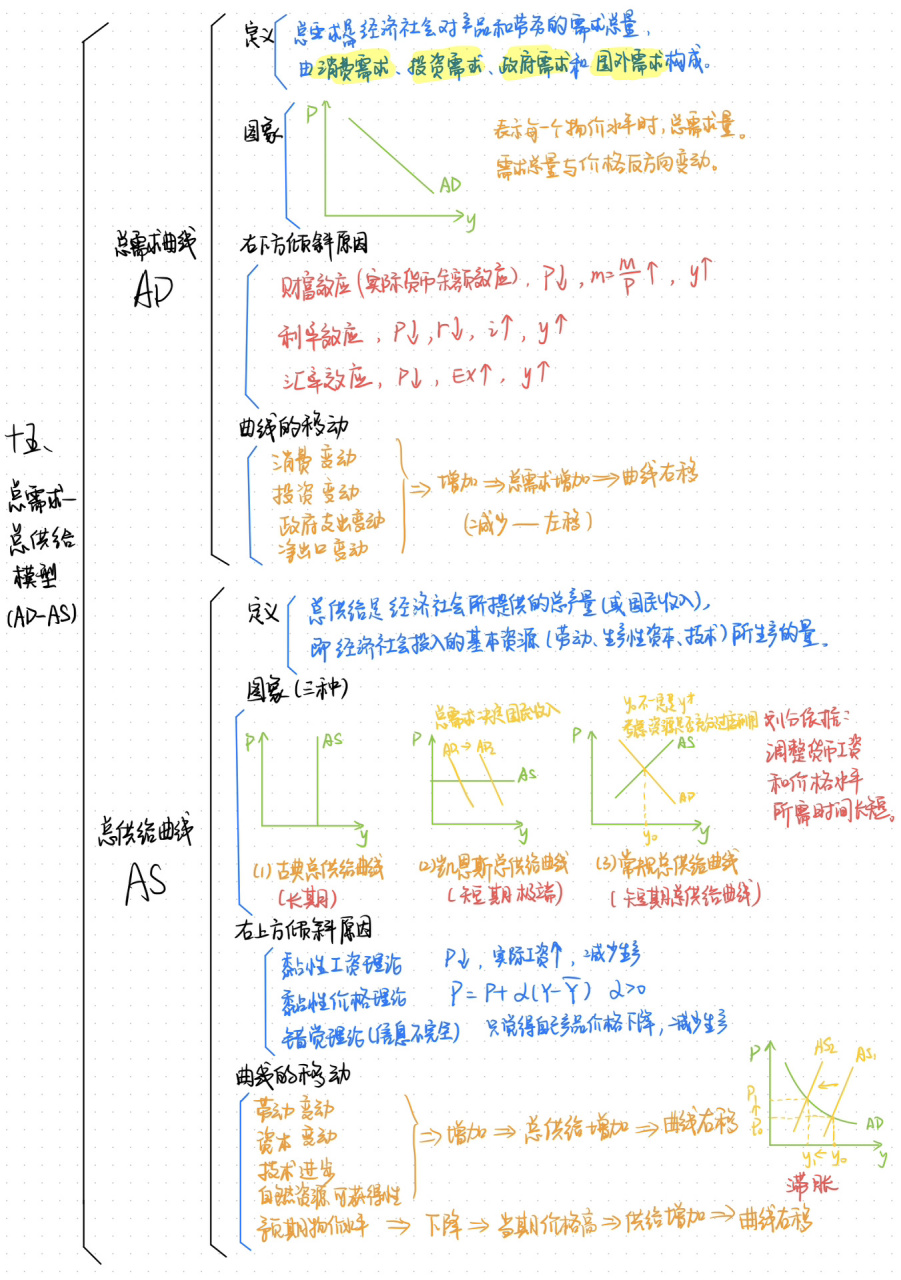 十五、
总需求-
总供给
模型
(AD-AS)
总需求曲线
AD
定义
总需求是经济社会对产品和劳务的需求总量,
由消费需求、投资需求、政府需求和国外需求构成。
图象
P
AD
y
表示每一个物价水平时,总需求量。
需求总量与价格反方向变动。
右下方倾斜原因
财富效应(实际货币余额效应), P↓, m=M/P↑, y↑
利率效应, P↓, r↓, i↑, y↑
汇率效应, P↓, EX↑, y↑
曲线的移动
消费变动
投资变动
政府支出变动
净出口变动
⇒ 增加 ⇒ 总需求增加 ⇒ 曲线右移
(减少——左移)
总供给曲线
AS
定义
总供给是经济社会所提供的总产量(或国民收入),
即经济社会投入的基本资源(劳动、生产性资本、技术)所生产的量。
图象(三种)
P
AS
y
(1)古典总供给曲线
(长期)
总需求决定国民收入
P
AD₁→AD₂
AS
y
(2)凯恩斯总供给曲线
(短期极端)
y₀不一定是y*
考虑资源是否充分过度利用
P
AS
AD
y₀
y
(3)常规总供给曲线
(短期总供给曲线)
划分依据:
调整货币工资
和价格水平
所需时间长短。
右上方倾斜原因
黏性工资理论 P↓, 实际工资↑, 减少生产
黏性价格理论 P=P+α(Y-Y̅) α>0
错觉理论(信息不完全) 只觉得自己产品价格下降, 减少生产
曲线的移动
劳动变动
资本变动
技术进步
自然资源可获得性
⇒ 增加 ⇒ 总供给增加 ⇒ 曲线右移
预期物价水平 ⇒ 下降 ⇒ 当期价格高 ⇒ 供给增加 ⇒ 曲线右移
P
AS₂
AS₁
P₁
↑
P₀
AD
y₁←y₀
y
滞胀